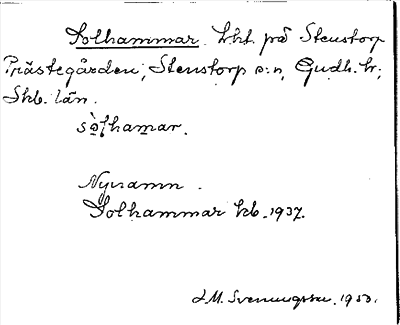 Solhammar. lht. på Stenstorp
Prästegården, Stenstorp s:n, Gudh. hr;
Skb. län.
sòlhamar.
Nynamn.
Solhammar kb. 1937.
J.M. Svenungsson. 1950.